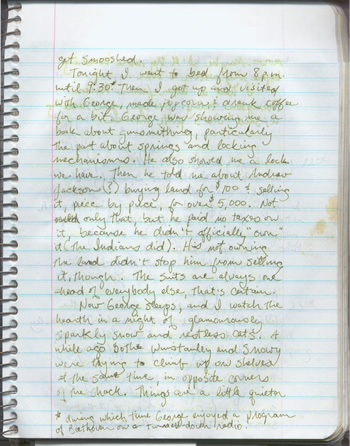 get smooshed.
Tonight I went to bed from 8 p.m.
until 9:30.* Then I got up and visited
with George, made popcorn & drank coffee
for a bit. George was showing me a
book about gunsmithing, particularly
the part about springs and locking
mechanisms. He also showed me a lock
we have. Then he told me about Andrew
Jackson(s) buying land for $100 & selling
it, piece by piece, for over $5,000. Not
only that, but he paid no taxes on
it, because he didn't officially "own"
it (the Indians did). His not owning
the land didn't stop him from selling
it, though. The suits are always one
ahead of everybody else, that's certain.
Now George sleeps, and I watch the
hearth in a night of glamorously
sparkly snow and restless cats. A
while ago both Winstanley and Snowy
were trying to climb up on shelves
at the same time, in opposite corners
of the shack. Things are a little quieter
* during which time George enjoyed a program
of Beethoven on a turned-down radio.